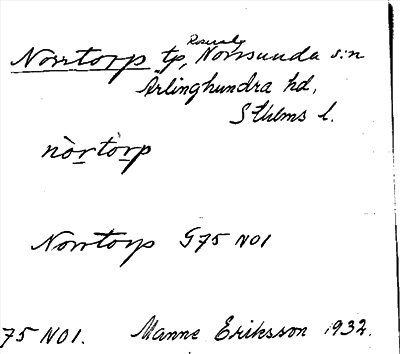 Norrtorp tp, Rosersby Norrsunda s:n
Ärlinghundra hd,
Sthlms l.
nòrtòrp
Norrtorp G75 NO1
75 NO1. Manne Eriksson 1932.